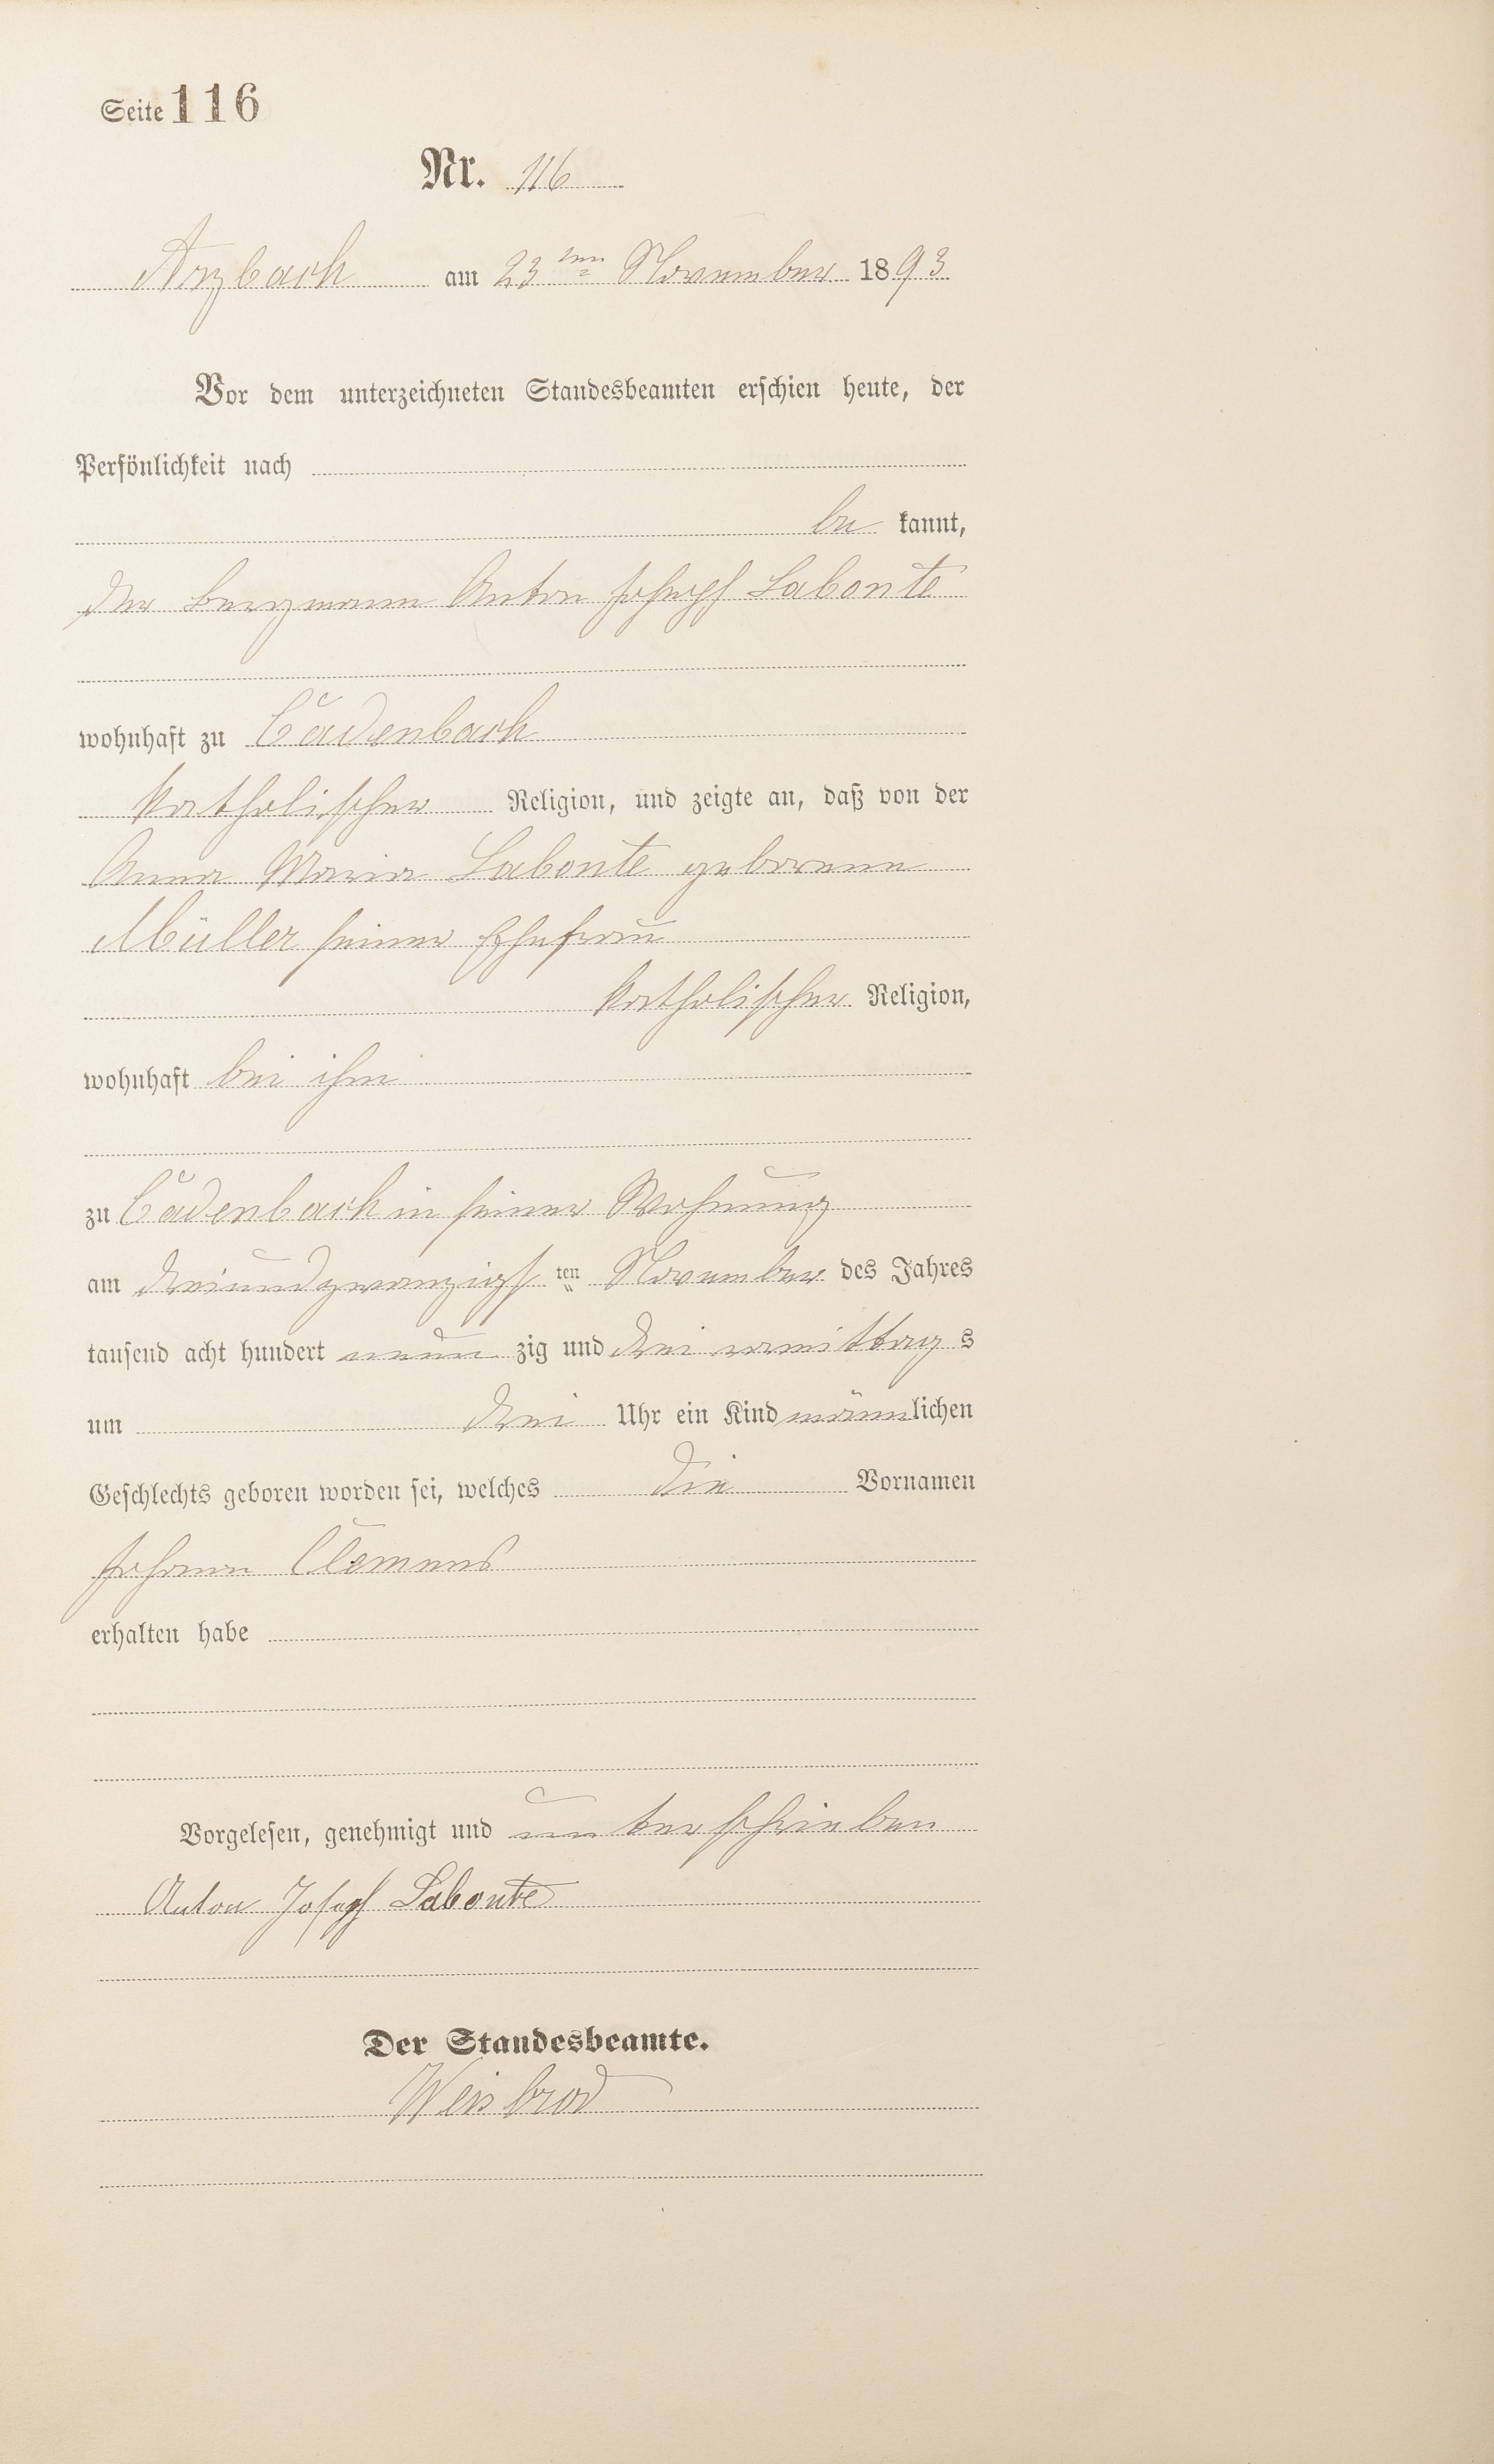 Seite 116
Nr. 116
Arzbach am 23ten November 1893
Vor dem unterzeichneten Standesbeamten erschien heute, der
Persönlichkeit nach
be kannt,
der Bergmann Anton Joseph Labonte
wohnhaft zu Cadenbach
katholischer Religion, und zeigte an, daß von der
Anna Maria Labonte geborene
Müller seiner Ehefrau
katholischer Religion,
wohnhaft bei ihm
zu Cadenbach in seiner Wohnung
am dreiundzwanzigsten November des Jahres
tausend acht hundert neun zig und drei vormittags
um drei Uhr ein Kind männlichen
Geschlechts geboren worden sei, welches die Vornamen
Johann Clemens
erhalten habe
Vorgelesen, genehmigt und unterschrieben
Anton Joseph Labonte
Der Standesbeamte.
Weisbrod